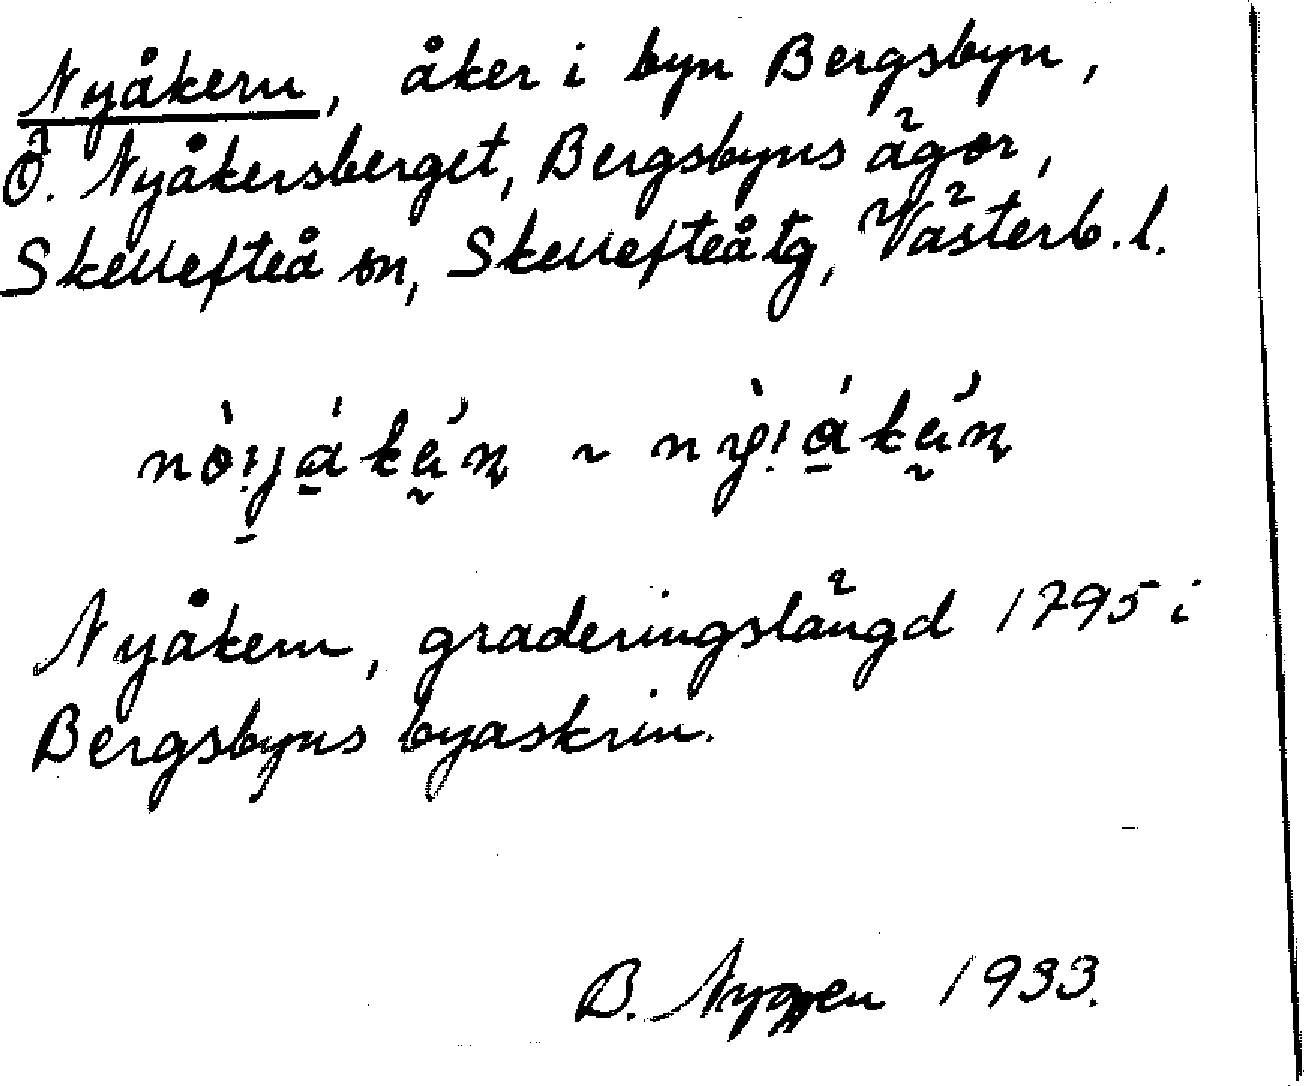 Nyåkern, åker i byn Bergsbyn,
Ö. Nyåkersberget, Bergsbyns ägor,
Skellefteå sn, Skellefteå tg, Västerb. l.
Nyåkern, graderingslängd 1795 i
Bergsbyns byaskrin.
B. Nygren 1933.